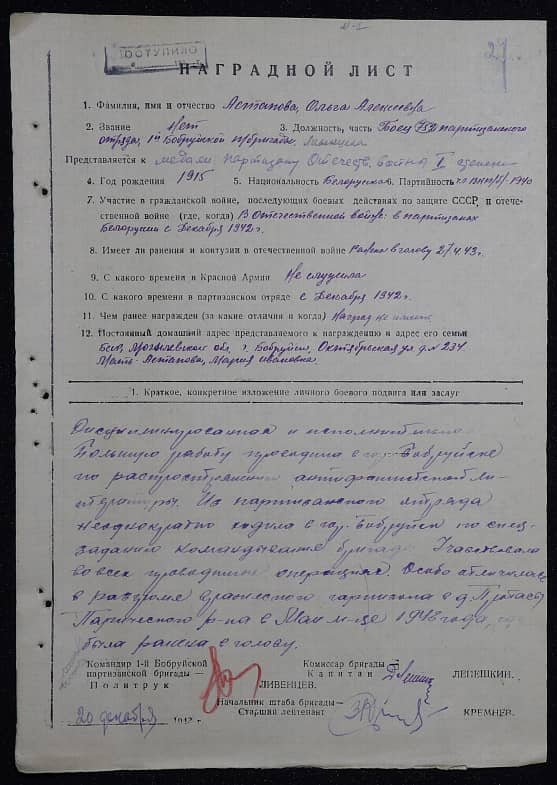 ПОСТУПИЛО
27
НАГРАДНОЙ ЛИСТ
1. Фамилия, имя и отчество Астапова, Ольга Алексеевна
2. Звание Нет 3. Должность, часть Боец 752 партизанского
отряда, 1й Бобруйской п/бригады,
Представляется к медали Партизану Отечеств. войны II степени
4. Год рождения 1915 5. Национальность Белорусска 6. Партийность ВКП/б/-1940
7. Участие в гражданской войне, последующих боевых действиях по защите СССР, и отече-
ственной войне (где, когда) В Отечественной войне: в партизанах
Белоруссии с Декабря 1942 г.
8. Имеет ли ранения и контузии в отечественной войне Ранена в голову 27.4.43г.
9. С какого времени в Красной Армии Не служила
10. С какого времени в партизанском отряде с Декабря 1942 г.
11. Чем ранее награжден (за какие отличия и когда) Наград не имеет
12. Постоянный домашний адрес представляемого к награждению и адрес его семьи
БССР, Могилевской обл. г. Бобруйск, Октябрьская ул. д. № 234
Мать - Астапова, Мария Ивановна.
1. Краткое, конкретное изложение личного боевого подвига или заслуг
Дисциплинированная и исполнительная
Большую работу проводила в гор. Бобруйске
по распространению антифашистской ли-
тературы. Из партизанского отряда
неоднократно ходила в гор. Бобруйск по спец-
заданию командования бригады. Участвовала
во всех проводимых операциях. Особо отличилась
в разгроме вражеского гарнизона в д. Протасы
Паричского р-на в Мае м-це 1943 года, где
была ранена в голову.
Командир 1-й Бобруйской
партизанской бригады—
Политрук ЛИВЕНЦЕВ.
Комиссар бригады—
Капитан ЛЕПЕШКИН.
Начальник штаба бригады—
Старший лейтенант КРЕМНЕВ.
20 декабря 1943 г.